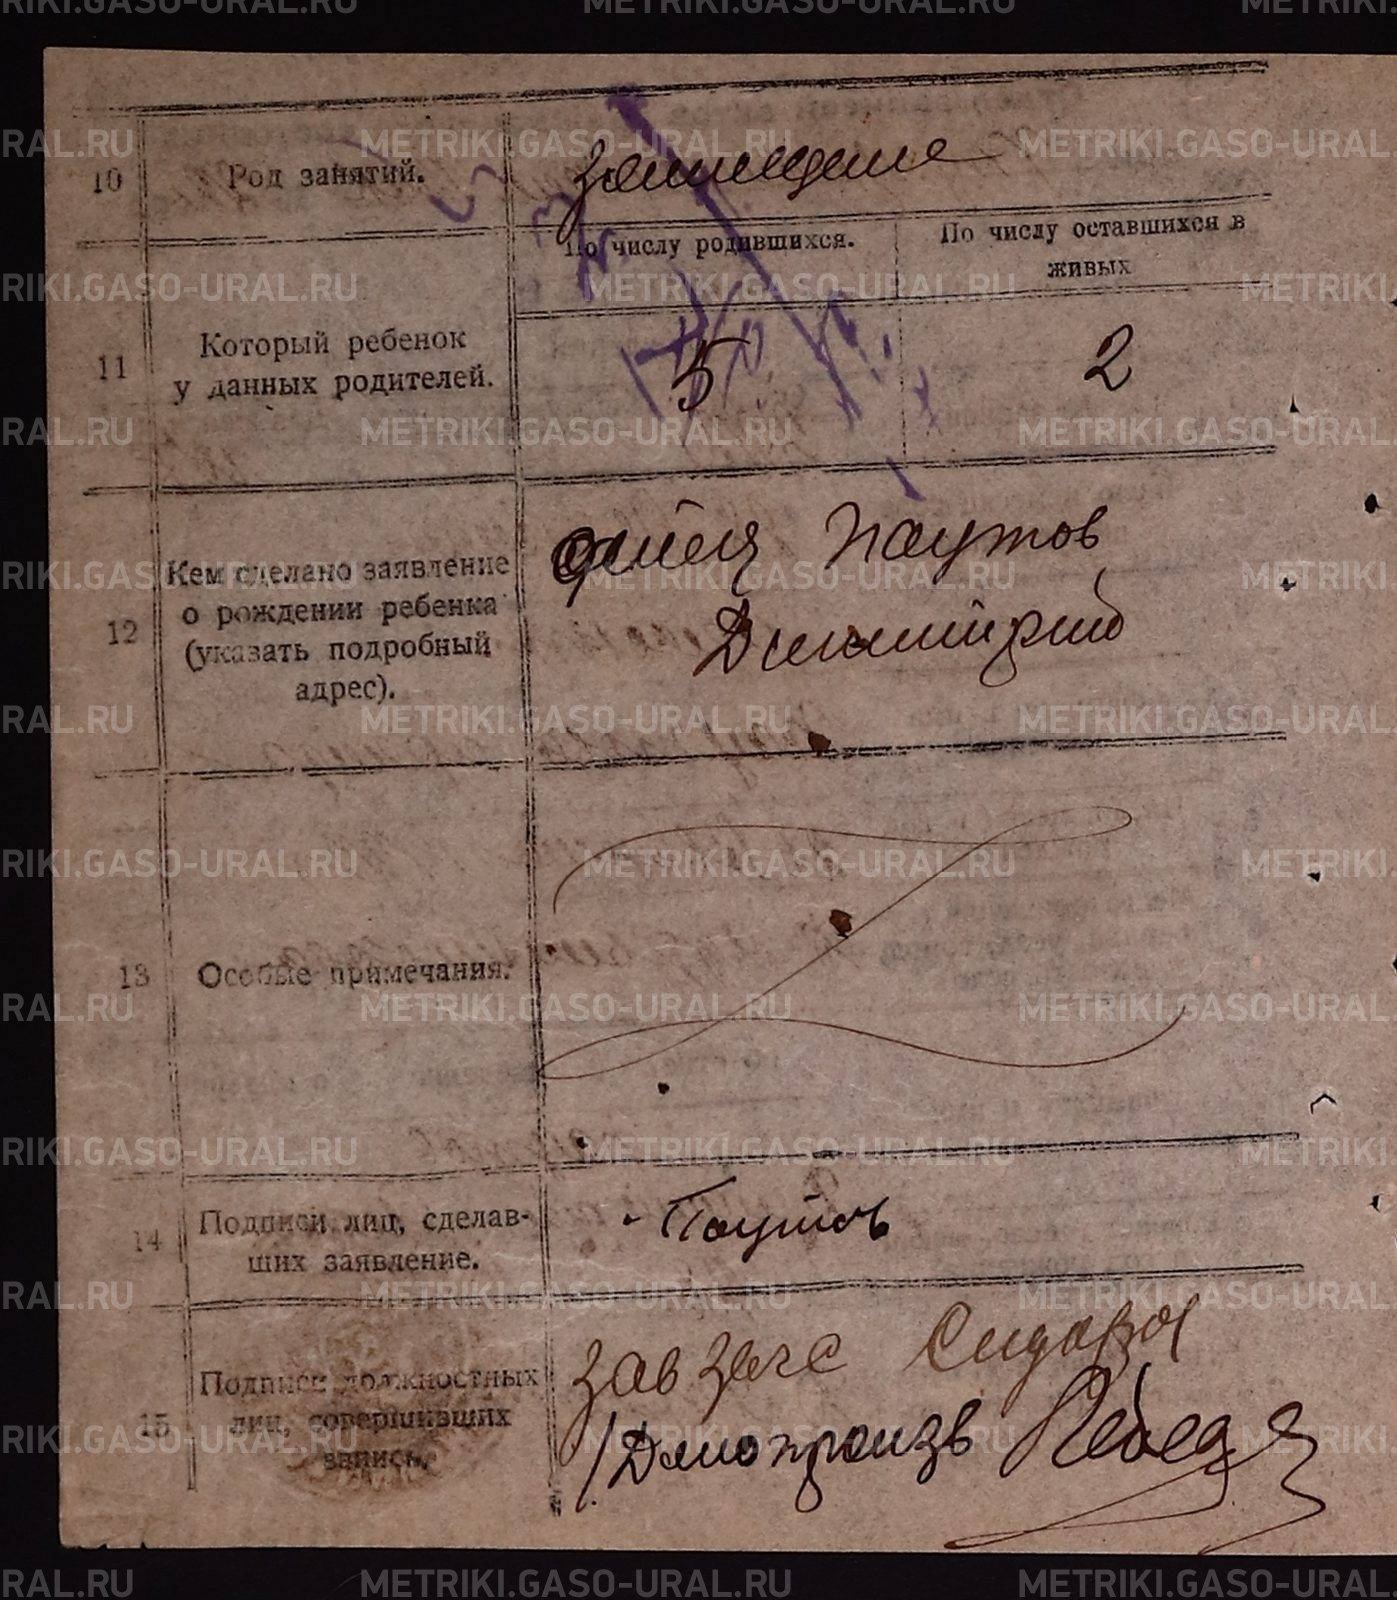 METRIKI.GASO-URAL.RU
10 Род занятий. земледелие
По числу родившихся. По числу оставшихся в
живых
11 Который ребенок
у данных родителей. 5 2
12 Кем сделано заявление
о рождении ребенка
(указать подробный
адрес).
Паутов
Димитрий
13 Особые примечания.
14 Подписи лиц, сделав-
ших заявление.
Паутов
15 Подписи должностных
лиц, совершивших
запись.
завзагс
Делопроизв